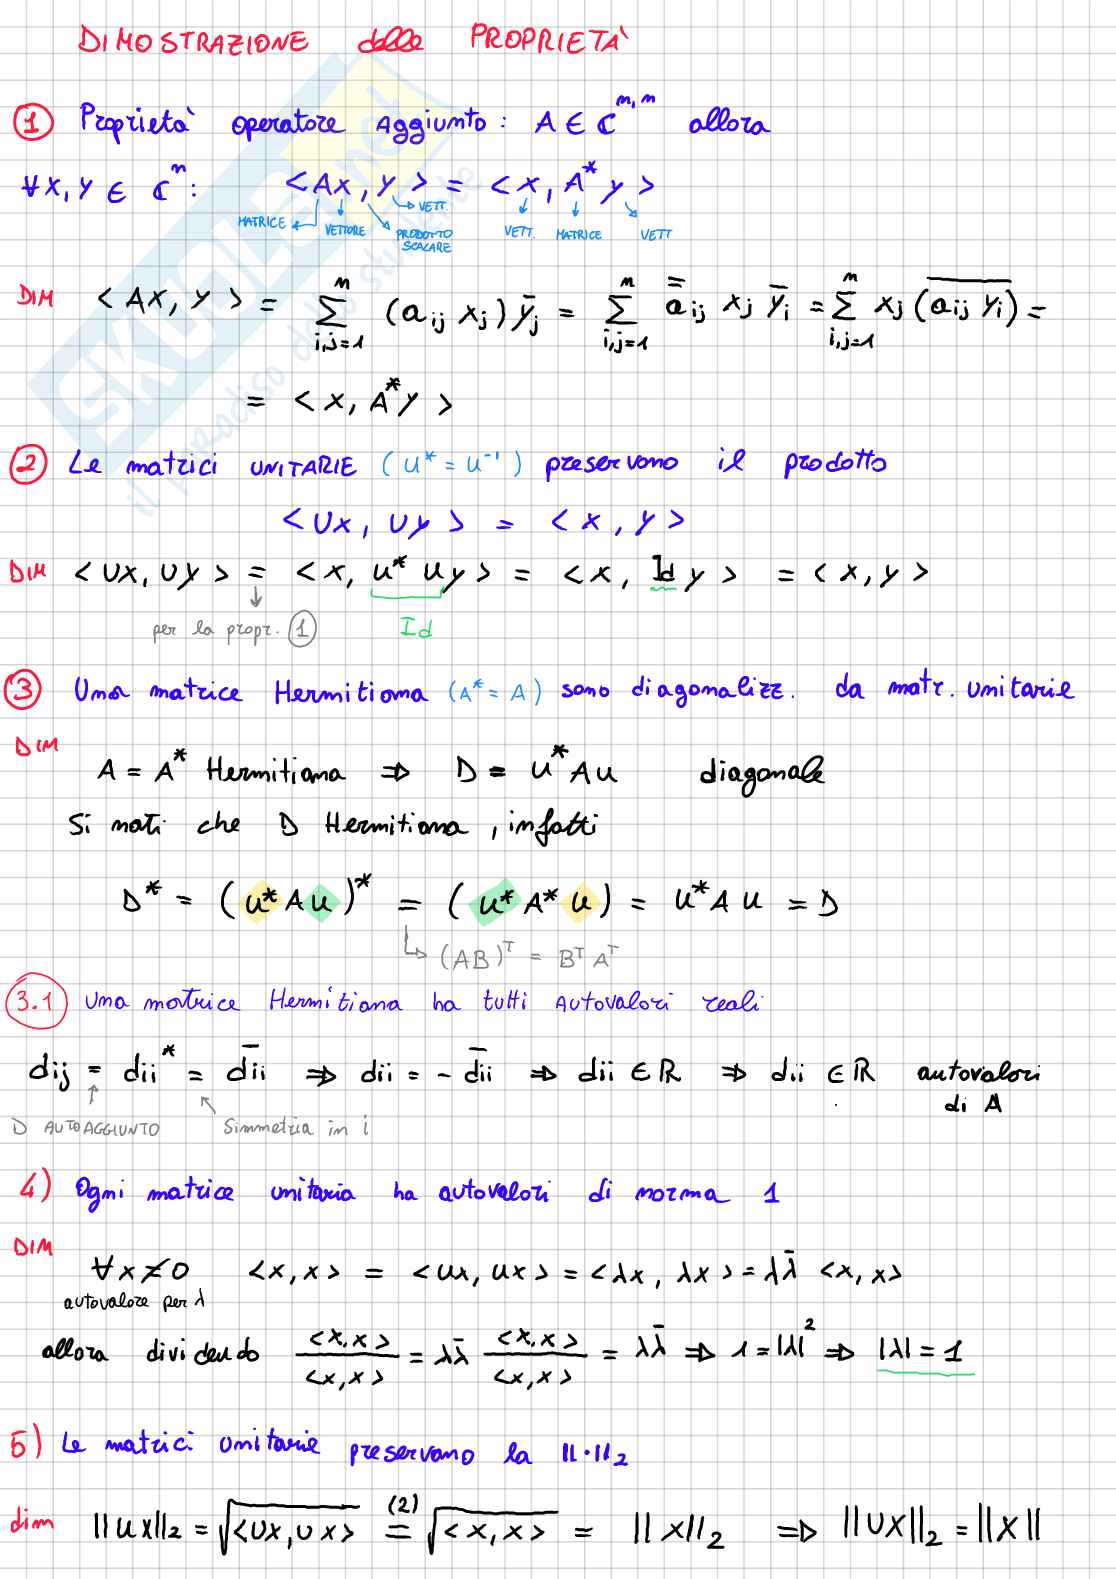 DIMOSTRAZIONE delle PROPRIETA'
① Proprietà operatore Aggiunto: A ∈ ℂ^{n,n} allora
∀x,y ∈ ℂ^n: <Ax,y> = <x,A*y>
MATRICE VETTORE PRODOTTO SCALARE VETT. VETT. MATRICE VETT
DIM <Ax,y> = ∑_{i,j=1}^n (a_{ij} x_j) ȳ_j = ∑_{i,j=1}^n a̿_{ij} x_j ȳ_i = ∑_{i,j=1}^n x_j (\overline{a̅_{ij} y_i}) =
= <x,A*y>
② Le matrici UNITARIE (U* = U^{-1}) preservano il prodotto
<Ux,Uy> = <x,y>
DIM <Ux,Uy> = <x,U*Uy> = <x,Idy> = <x,y>
per la propr. ① Id
③ Una matrice Hermitiana (A* = A) sono diagonalizz. da matr. unitarie
DIM
A = A* Hermitiana ⇒ D = U*AU diagonale
Si noti che D Hermitiana, infatti
D* = (U*AU)* = (U*A*U) = U*AU = D
(AB)^T = B^T A^T
3.1 Una matrice Hermitiana ha tutti Autovalori reali
dij = dii* = \overline{dii} ⇒ dii = - \overline{dii} ⇒ dii ∈ ℝ ⇒ dii ∈ ℝ autovalori
di A
D AUTOAGGIUNTO Simmetria in i
4) Ogni matrice unitaria ha autovalori di norma 1
DIM
∀x≠0 <x,x> = <Ux,Ux> = <λx,λx> = λλ̄ <x,x>
autovalore per λ
allora dividendo <x,x>/<x,x> = λλ̄ <x,x>/<x,x> = λλ̄ ⇒ 1 = |λ|² ⇒ |λ| = 1
5) Le matrici unitarie preservano la ||·||₂
dim ||Ux||₂ = √<Ux,Ux> =^{(2)} √<x,x> = ||x||₂ ⇒ ||Ux||₂ = ||x||
SKUOLA.net
il paradiso dello studente